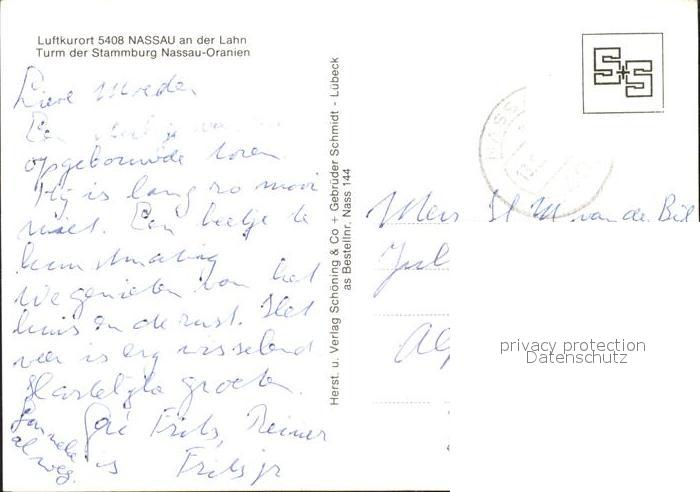 Luftkurort 5408 NASSAU an der Lahn
Turm der Stammburg Nassau-Oranien
Lieve Moeder
Een
opgebouwde toren.
Hij is lang zo mooi
niet. Een beetje te
kunstmatig
We genieten van het
huis en de rust. Het
weer is erg wisselend
Hartelijke groeten.
Frits, Reinier
Frits jr
is
al weg.
Herst. u. Verlag Schöning & Co + Gebrüder Schmidt - Lübeck
as Bestellnr. Nass 144
S+S
NASS
Mevr v.d. Bil
Jul
Al
privacy protection
Datenschutz